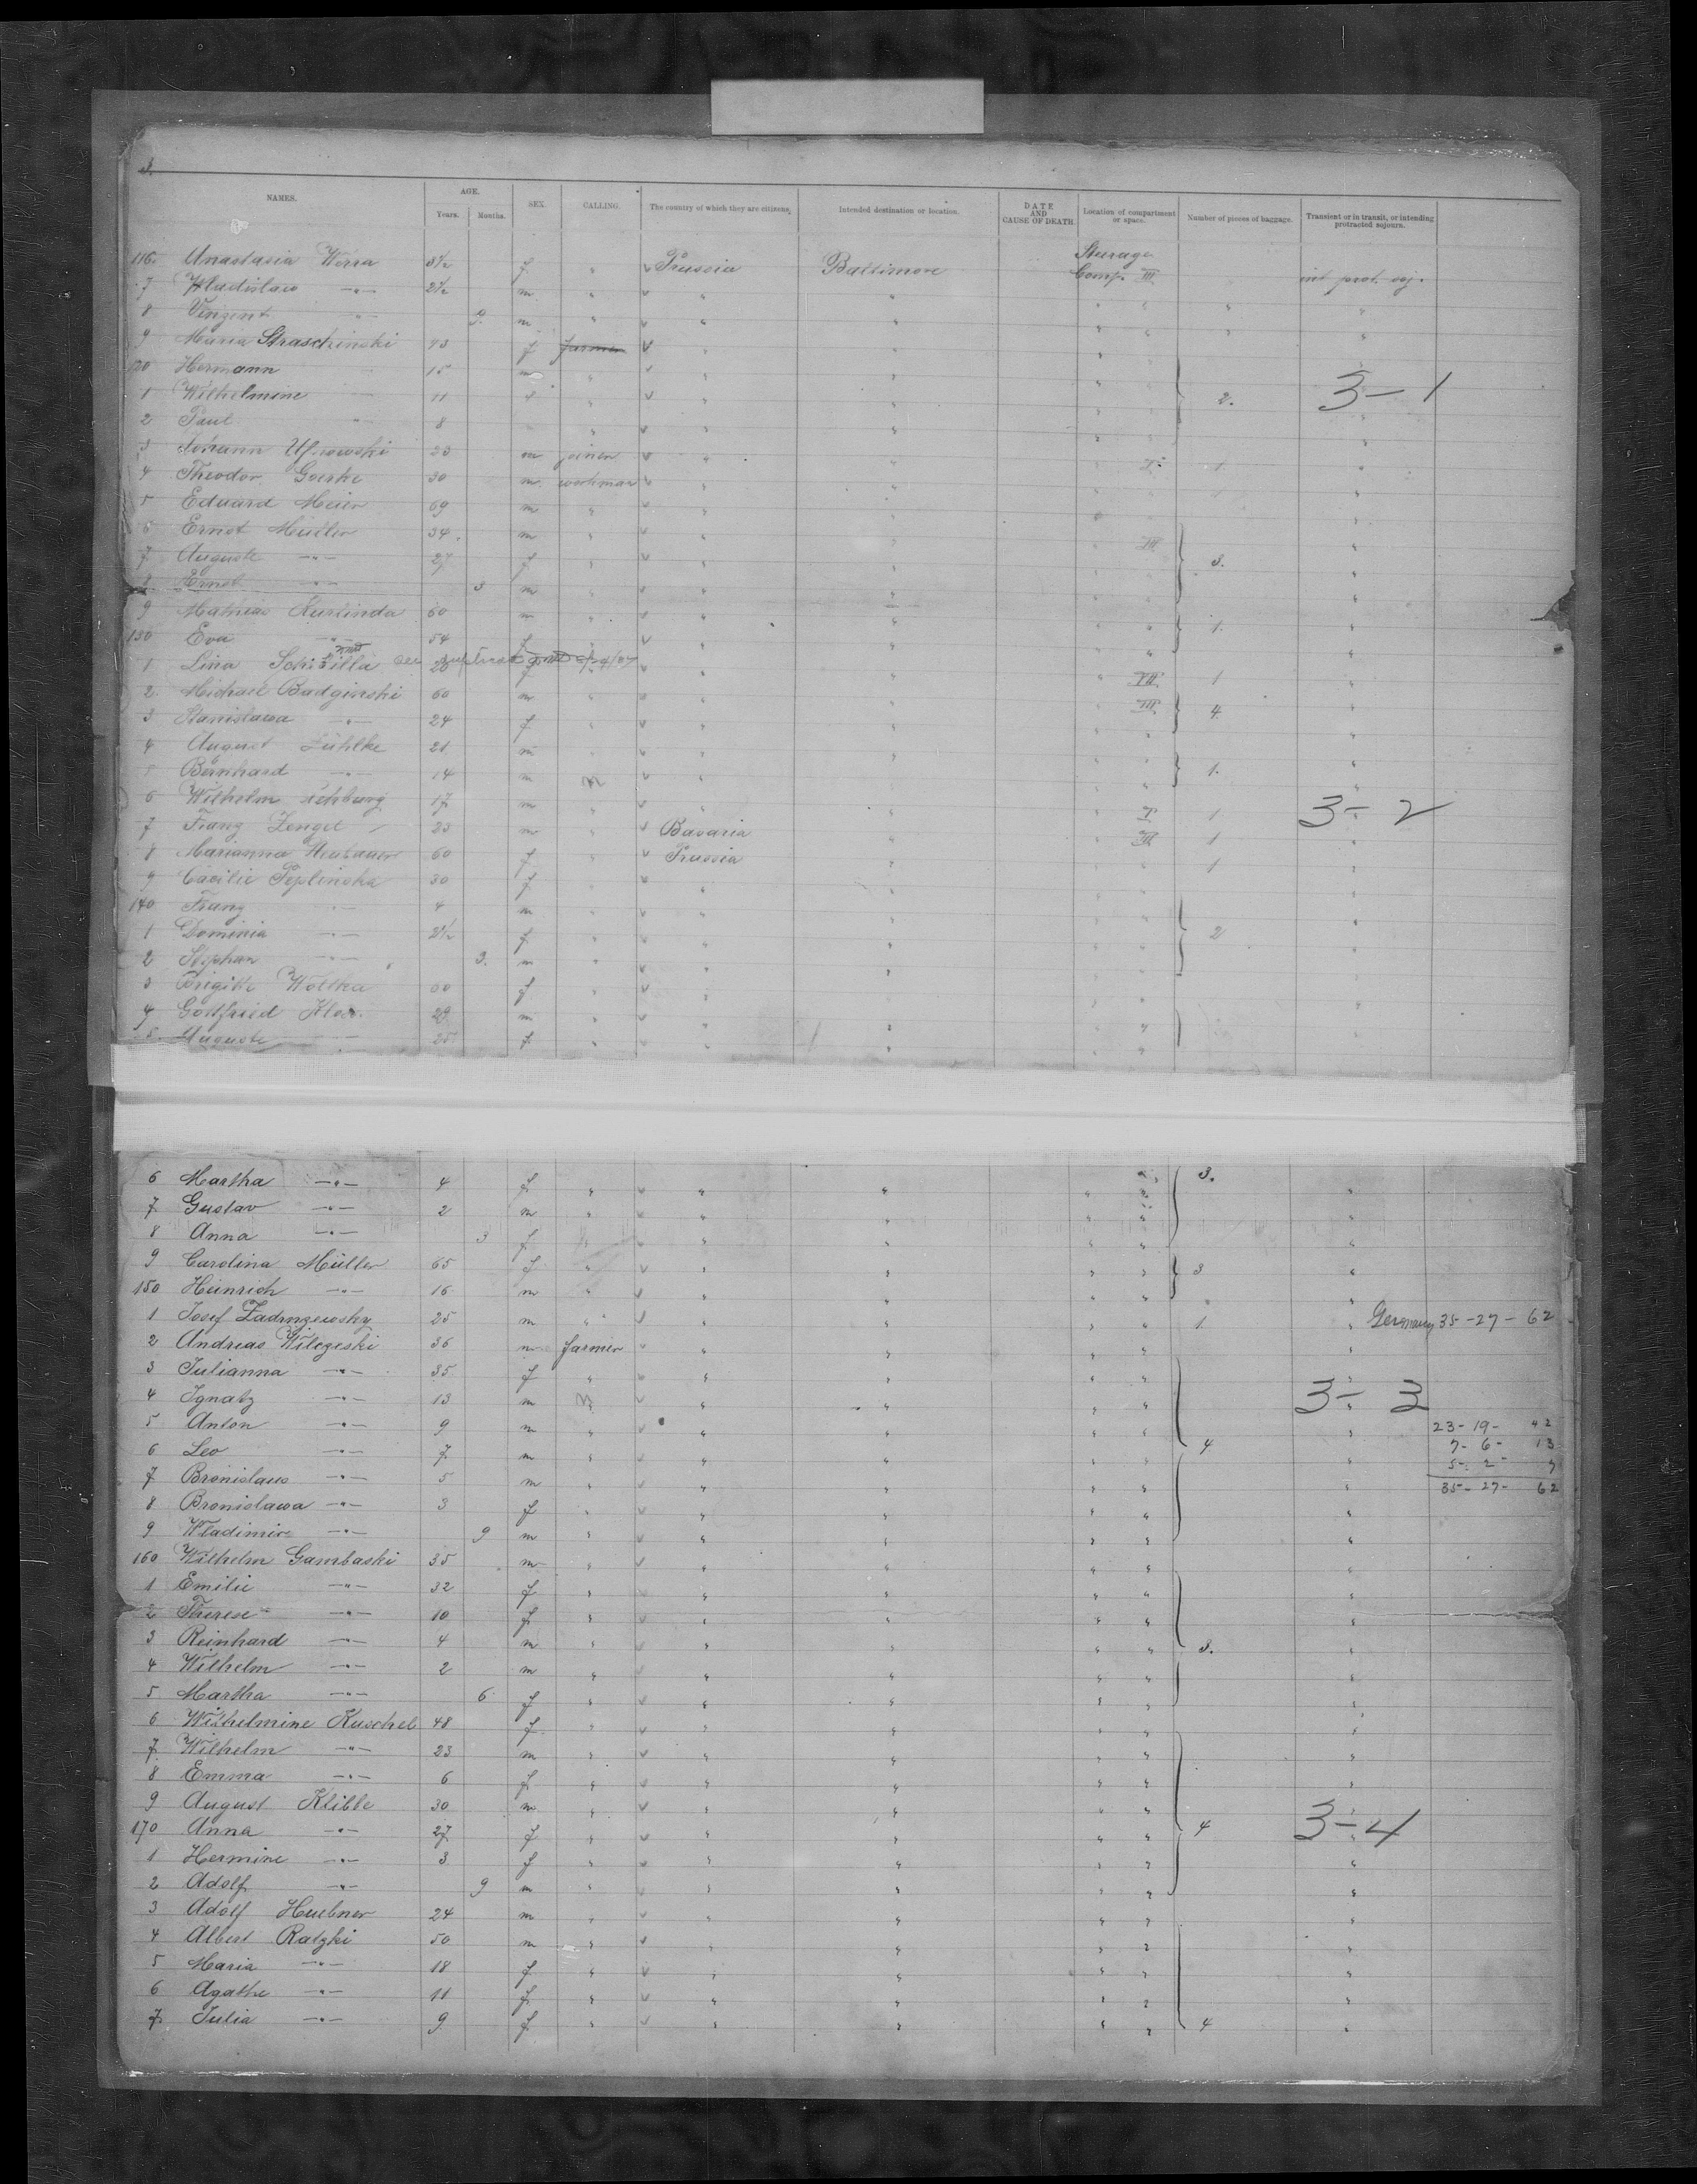 3.
NAMES. AGE. Years. Months. SEX. CALLING. The country of which they are citizens. Intended destination or location. DATE AND CAUSE OF DEATH. Location of compartment or space. Number of pieces of baggage. Transient or in transit, or intending protracted sojourn.
116. Anastasia Werra 3½ f " Prussia Baltimore Steerage Comp. III int prot. soj.
7 Wladislaw -"- 2½ m " " "
8 Vinzent 9. m " " "
9 Maria Straschinski 43 f farmer " "
120 Hermann 15 m " " "
1 Wilhelmine 11 f " " " 2. 3-1
2 Paul " 8 " " "
3 Johann 23 m joiner " " I. 1
4 Theodor Goerke 30 m. workman " "
5 Eduard Meier 69 m " " "
6 Ernst Müller 34. m " " " III
7 Auguste -"- 27 f " " " 3.
8 Ernst -"- 3 m " " "
9 Mathias Kurlinda 60 m " " "
130 Eva -"- 54 f " " " 1.
1 Lina 20 f " " VII 1
2. Michael Badginski 60 m " " " III
3 Stanislawa -"- 24 f " " " 4.
4 August Lühlke 21 m " " "
Bernhard -"- 14 m " " 1.
6 Wilhelm 17 m " " " I 1 3-2
7 Franz Zengel 23 m " Bavaria " III 1
8 Marianna Neubauer 60 f " Prussia " 1
9 Cacilie Peplinska 30 f " " "
140 Franz -"- 4 m " " "
1 Dominia -"- 2½ f " " " 2
2 Stephan -"- 3. m " " "
3 Brigitte Woltka 60 f " " "
4 Gottfried 29 m " " "
5. Auguste -"- 25 f " " "
6 Martha -"- 4 f " " " " " 3. "
7. Gustav -"- 2 m " " " " " "
8 Anna -"- 3 f " " " " " "
9 Carolina Müller 65 f " " " " " 3 "
150 Heinrich -"- 16 m " " " " " "
1 Josef 25 m " " " " " 1. " Germany 35-27-62
2 Andreas Wilczeski 36 m farmer " " " " "
3 Julianna -"- 35 f " " " " " "
4 Ignatz -"- 13 m " " " " " 3-3
5 Anton -"- 9 m " " " " " " 23-19- 42
6 Leo -"- 7. m " " " " " 4 " 7-6- 13
7 Bronislaus -"- 5 m " " " " " " 5-2- 7
8 Bronislawa -"- 3 f " " " " " " 35-27- 62
9 Wladimire -"- 9 m " " " " " "
160 Wilhelm Gambaski 35 m " " " " " "
1 Emilie -"- 32 f " " " " " "
2 Therese -"- 10 f " " " " " "
3 Reinhard -"- 4 m " " " " " 3. "
4 Wilhelm -"- 2 m " " " " " "
5 Martha -"- 6 f " " " " " "
6 Wilhelmine Kuschel 48 f. " " " " " "
7. Wilhelm -"- 23 m " " " " " "
8 Emma -"- 6 f " " " " " "
9 August Klibbe 30 m " " " " " "
170 Anna -"- 27 f " " " " " 4 3-4
1 Hermine -"- 3 f " " " " " "
2 Adolf -"- 9 m " " " " " "
3 Adolf Huebner 24 m " " " " " "
4 Albert Ratzki 50 m " " " " " "
5 Maria -"- 18 f " " " " " "
6 Agathe -"- 11 f " " " " " "
7. Julia -"- 9 f " " " " " 4 "